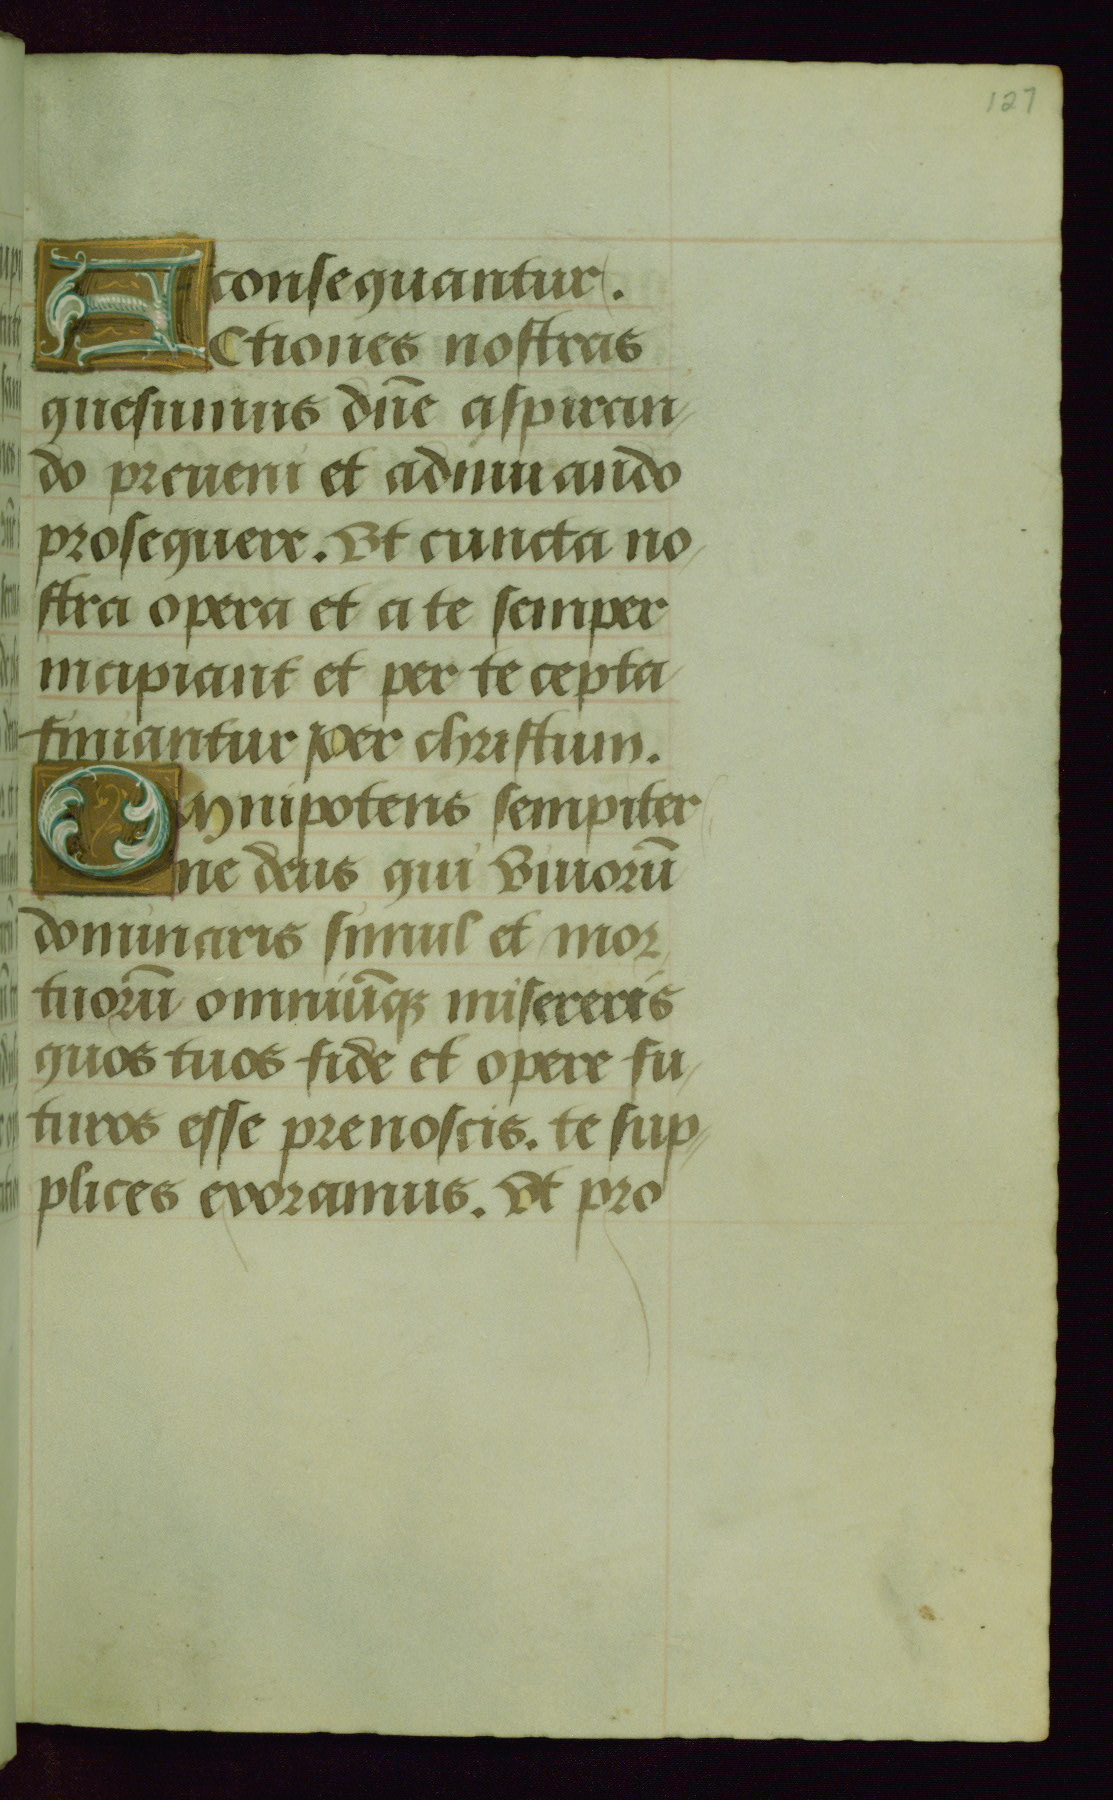 127
consequantur.
Actiones nostras
quesumus dñe aspiran
do preueni et adiuuando
prosequere. Vt cuncta no
stra opera et a te semper
incipiant et per te cepta
finiantur Per christum.
Omnipotens sempiter
ne deus qui viuorũ
dominaris simul et mor
tuorũ omniũqꝫ misereris
quos tuos fide et opere fu
turos esse prenoscis. te sup
plices exoramus. Vt pro